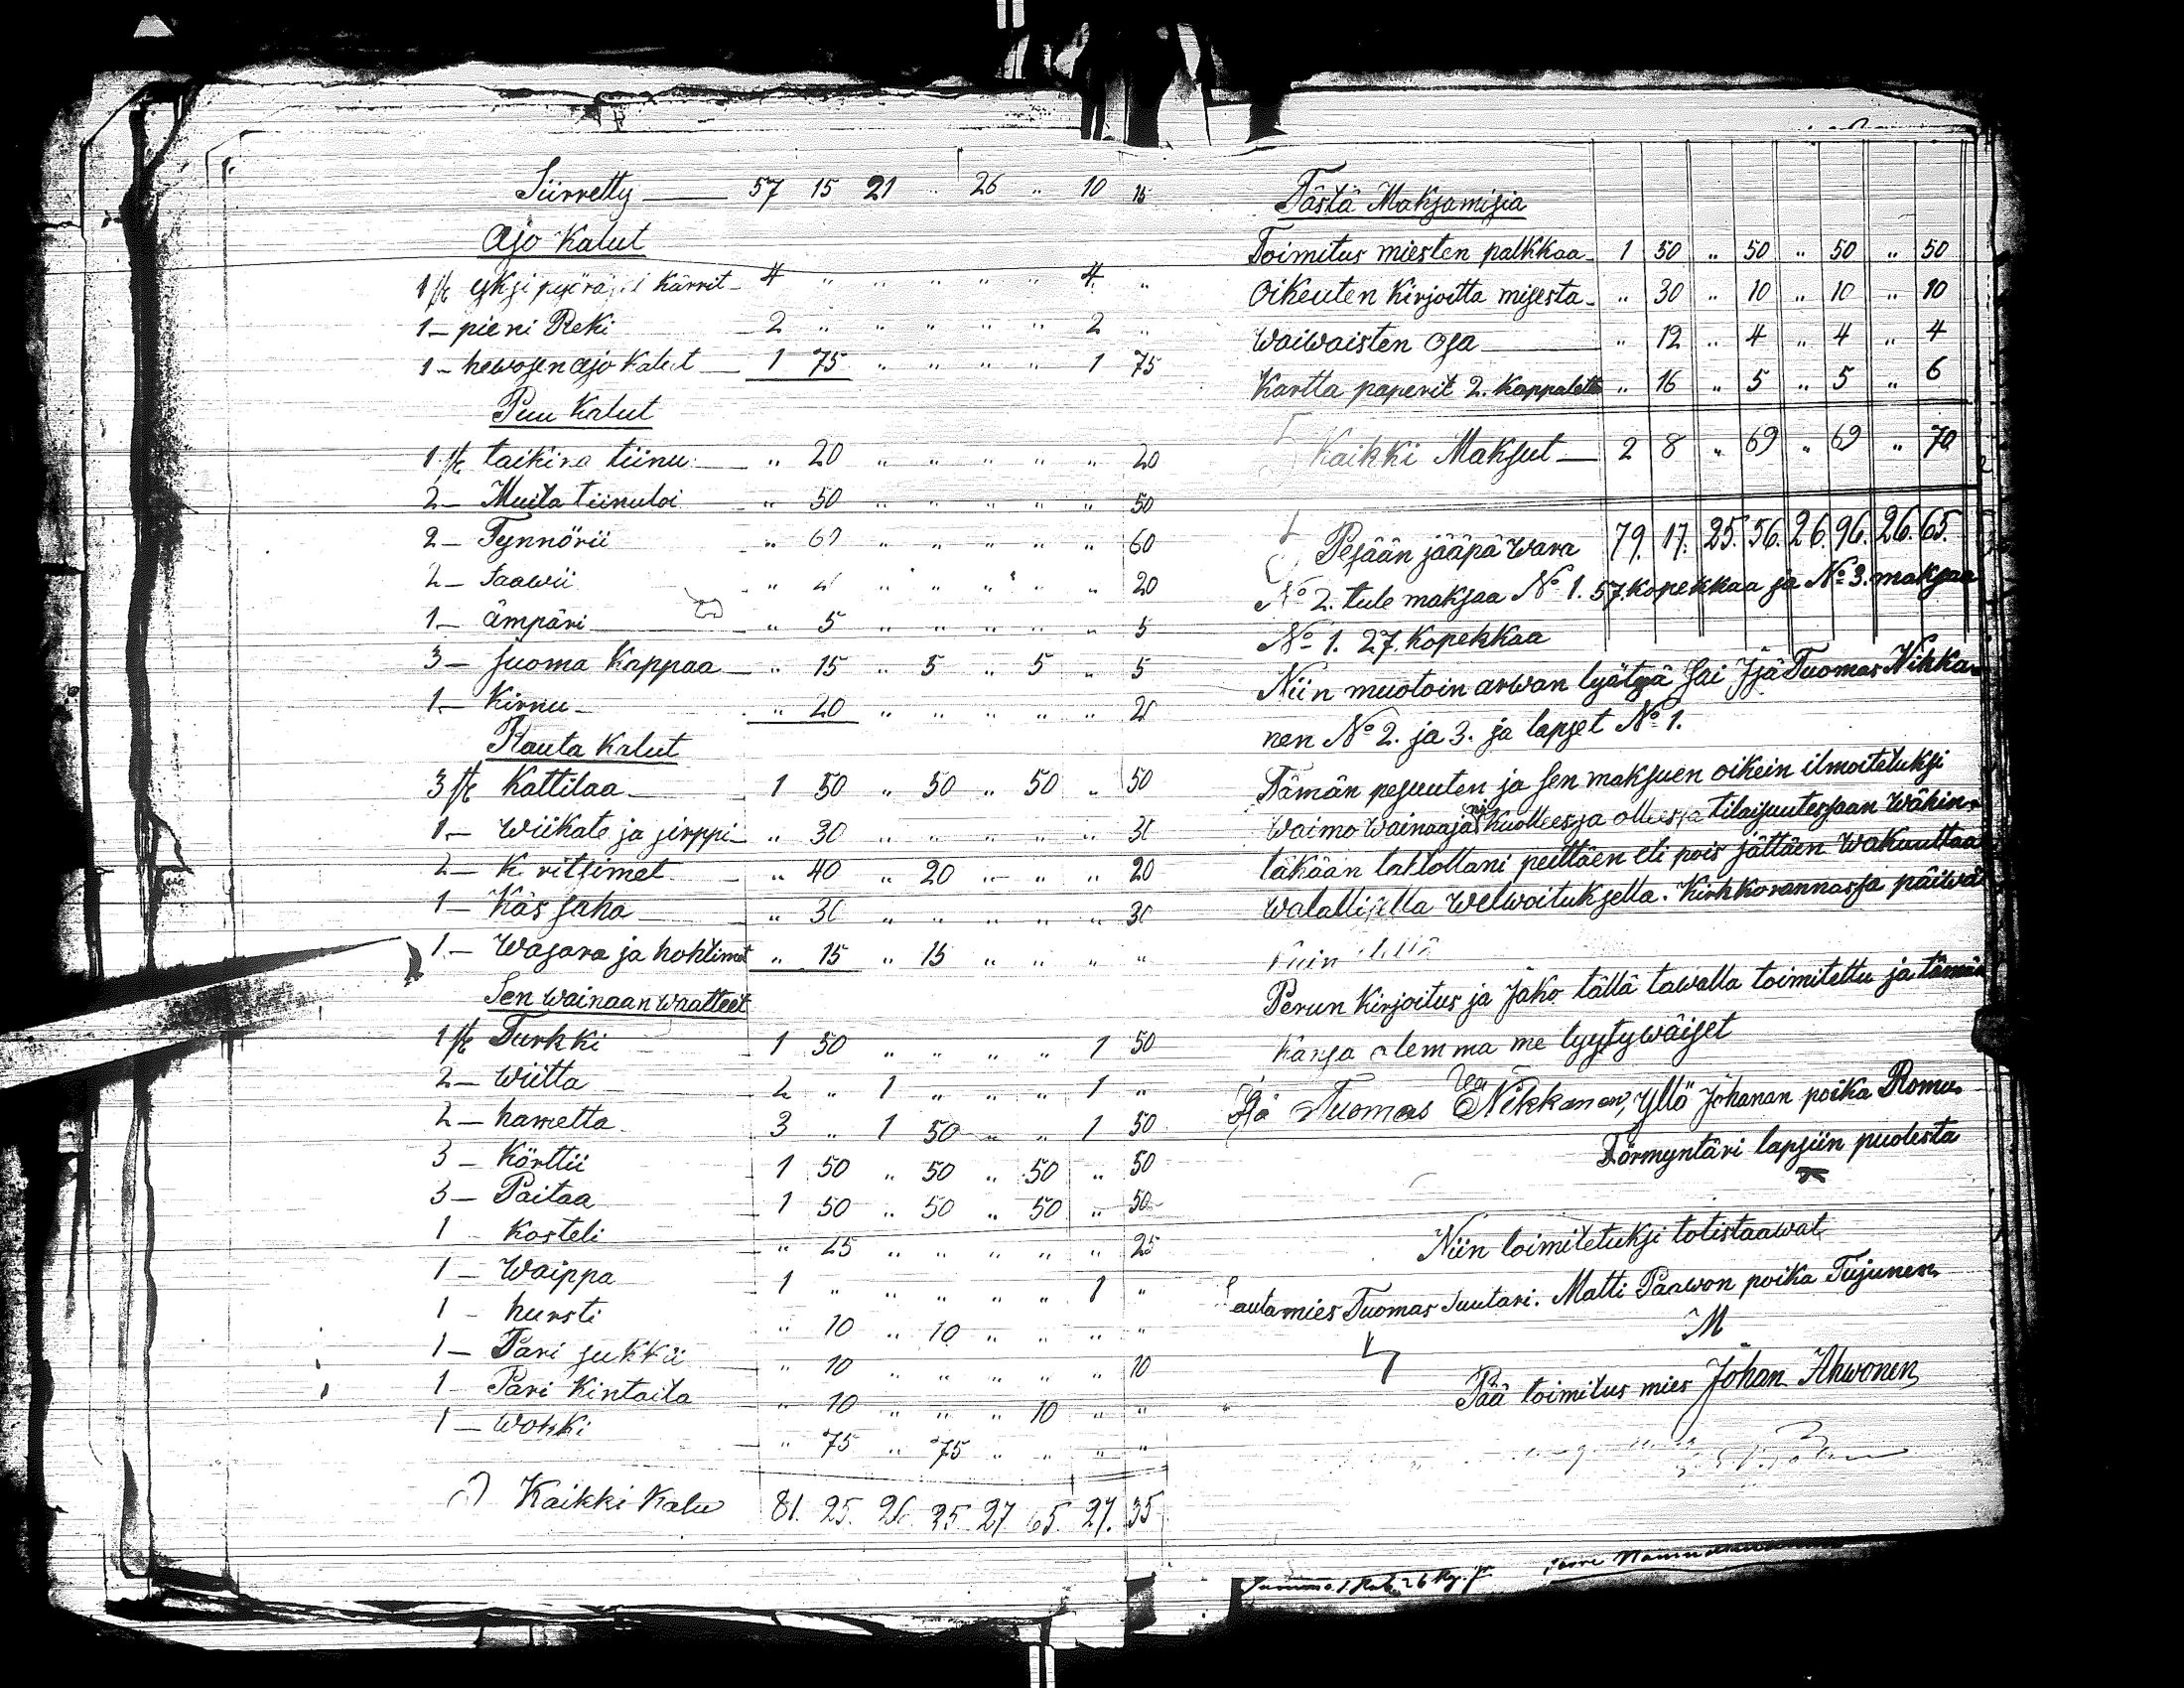 Siirretty — 57 15 21 " 26 " 10 15
Ajo Kalut
1 st yksi pyöräjet kärrit — 4 " " " " " 4 "
1 — pieni Reki — 2 " " " " " 2 "
1 — hewosen ajo kalut — 1 75 " " " " 1 75
Puu Kalut
1 st taikina tiinu — " 20 " " " " " 20
2 — Muita tiinuloi — " 50 " " " " " 50
2 — Tynnörii — " 60 " " " " " 60
2 — Saawii " " " " " " 20
1 — ämpäri — " 5 " " " " " 5
3 — juoma Kappaa — " 15 " 5 " 5 " 5
1 — Kirnu — " 20 " " " " " 20
Rauta Kalut
3 st Kattilaa — 1 50 " 50 " 50 " 50
1 — Wiikate ja sirppi — " 30 " " " " " 30
2 — K ritsimet — " 40 " 20 " " " 20
1 — Käs saha — " 30 " " " " " 30
1 — Wasara ja hohtimet " 15 " 15 " " " "
Sen wainaan waatteet
1 st Turkki — 1 50 " " " " 1 50
2 — Wiitta — 2 " 1 " " " 1 "
2 — hametta — 3 " 1 50 " " 1 50
3 — Körttii — 1 50 " 50 " 50 " 50
3 — Paitaa — 1 50 " 50 " 50 " 50
1 Kosteli — " 25 " " " " " 25
1 — Waippa — 1 " " " " " 1 "
1 — hursti " 10 " 10 " " " "
1 — Pari sukkii — " 10 " " " " " 10
1 — Pari Kintaita " 10 " " " 10 " "
1 — Wokki — " 75 " 75 " " " "
Kaikki Kalu 81. 25. 26. 25. 27 65. 27. 35
Tästä Maksamisia
Toimitus miesten palkkaa — 1 50 " 50 " 50 " 50
Oikeuten Kirjoitta misesta — " 30 " 10 " 10 " 10
Waiwaisten osa — " 12 " 4 " 4 " 4
Kartta paperit 2. Kappaletta " 16 " 5 " 5 " 6
Kaikki Maksut — 2 8 " 69 " 69 " 70
Pesään jääpä wara 79. 17. 25. 56. 26. 96. 26. 65.
No 2. tule maksaa No 1. 57. kopekkaa ja No 3. maksaa
No 1. 27. Kopekkaa
Niin muotoin arwan lyätyä sai Isä Tuomas Nikka-
nen No 2. ja 3. ja lapset No 1.
Tämän pesuuten ja sen maksuen oikein ilmoiteluksi
Waimo Wainaajani Kuolleessa ollessa tilaisuutessaan Wähin-
täkään tahtottani peittäen eli pois jättäen Wakuuttaa
Walallisella Welwoituksella. Kirkkorannassa päiwä
kuin
Perun Kirjoitus ja Jako tällä tawalla toimitettu ja tämän
kansa olemma me tyytywäiset
Isä Tuomas Nikkanen, Yllö Johanan poika Romu
Förmyntäri lapsiin puolesta
Niin toimitetuksi totistaawat
Lautamies Tuomas Suutari. Matti Paawon poika Tujunen
M
Pää toimitus mies Johan Ihwonen
Summa 1 Rub. 26 kop.